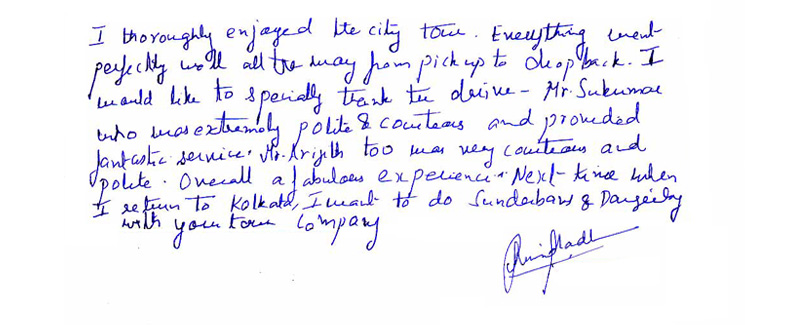 I thoroughly enjoyed the city tour. Everything went
perfectly well all the way from pick up to drop back. I
would like to specially thank the drive - Mr. Sukumar
who was extremely polite & courteous and provided
fantastic service. Mr. Arijeth too was very courteous and
polite. Overall a fabulous experience. Next time when
I return to Kolkata, I want to do Sunderbans & Dargeeling
with your tour Company